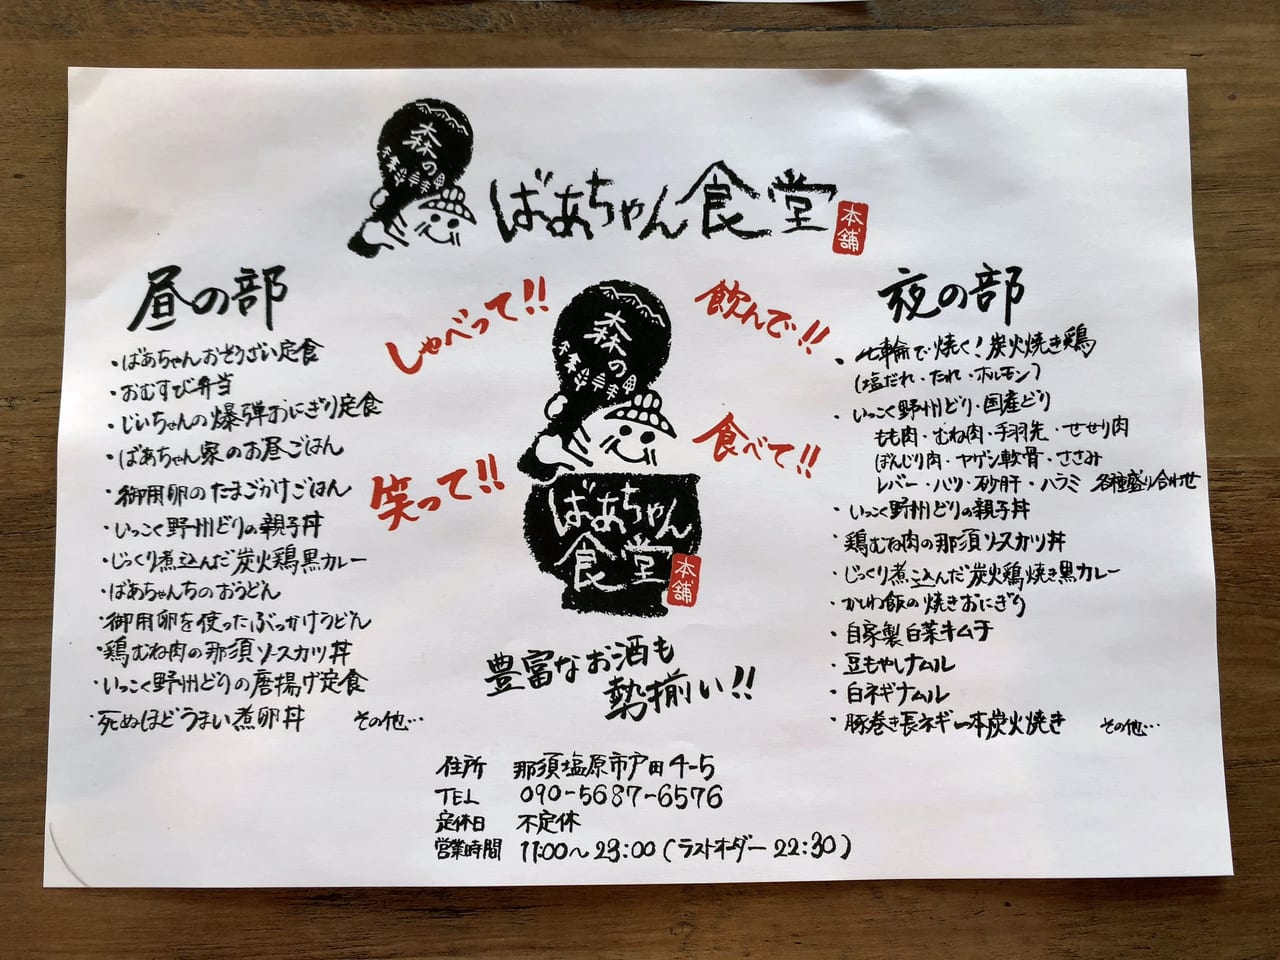 森の
ばあちゃん食堂
本舗
昼の部
・ばあちゃんおそうざい定食
・おむすび弁当
・じいちゃんの爆弾おにぎり定食
・ばあちゃん家のお昼ごはん
・御用卵のたまごかけごはん
・いっこく野州どりの親子丼
・じっくり煮込んだ炭火鶏黒カレー
・ばあちゃんちのおうどん
・御用卵を使ったぶっかけうどん
・鶏むね肉の那須ソースカツ丼
・いっこく野州どりの唐揚げ定食
・死ぬほどうまい煮卵丼 その他…
しゃべって!!
飲んで!!
笑って!!
食べて!!
森の
ばあちゃん
食堂
本舗
豊富なお酒も
勢揃い!!
夜の部
・七輪で焼く!炭火焼き鶏
(塩だれ・たれ・ホルモン)
・いっこく野州どり・国産どり
もも肉・むね肉・手羽先・せせり肉
ぼんじり肉・ヤゲン軟骨・ささみ
レバー・ハツ・砂肝・ハラミ 各種盛り合わせ
・いっこく野州どりの親子丼
・鶏むね肉の那須ソースカツ丼
・じっくり煮込んだ炭火鶏焼き黒カレー
・かしわ飯の焼きおにぎり
・自家製白菜キムチ
・豆もやしナムル
・白ネギナムル
・豚巻き長ネギ一本炭火焼き その他…
住所 那須塩原市戸田4-5
TEL 090-5687-6576
定休日 不定休
営業時間 11:00〜23:00(ラストオーダー 22:30)